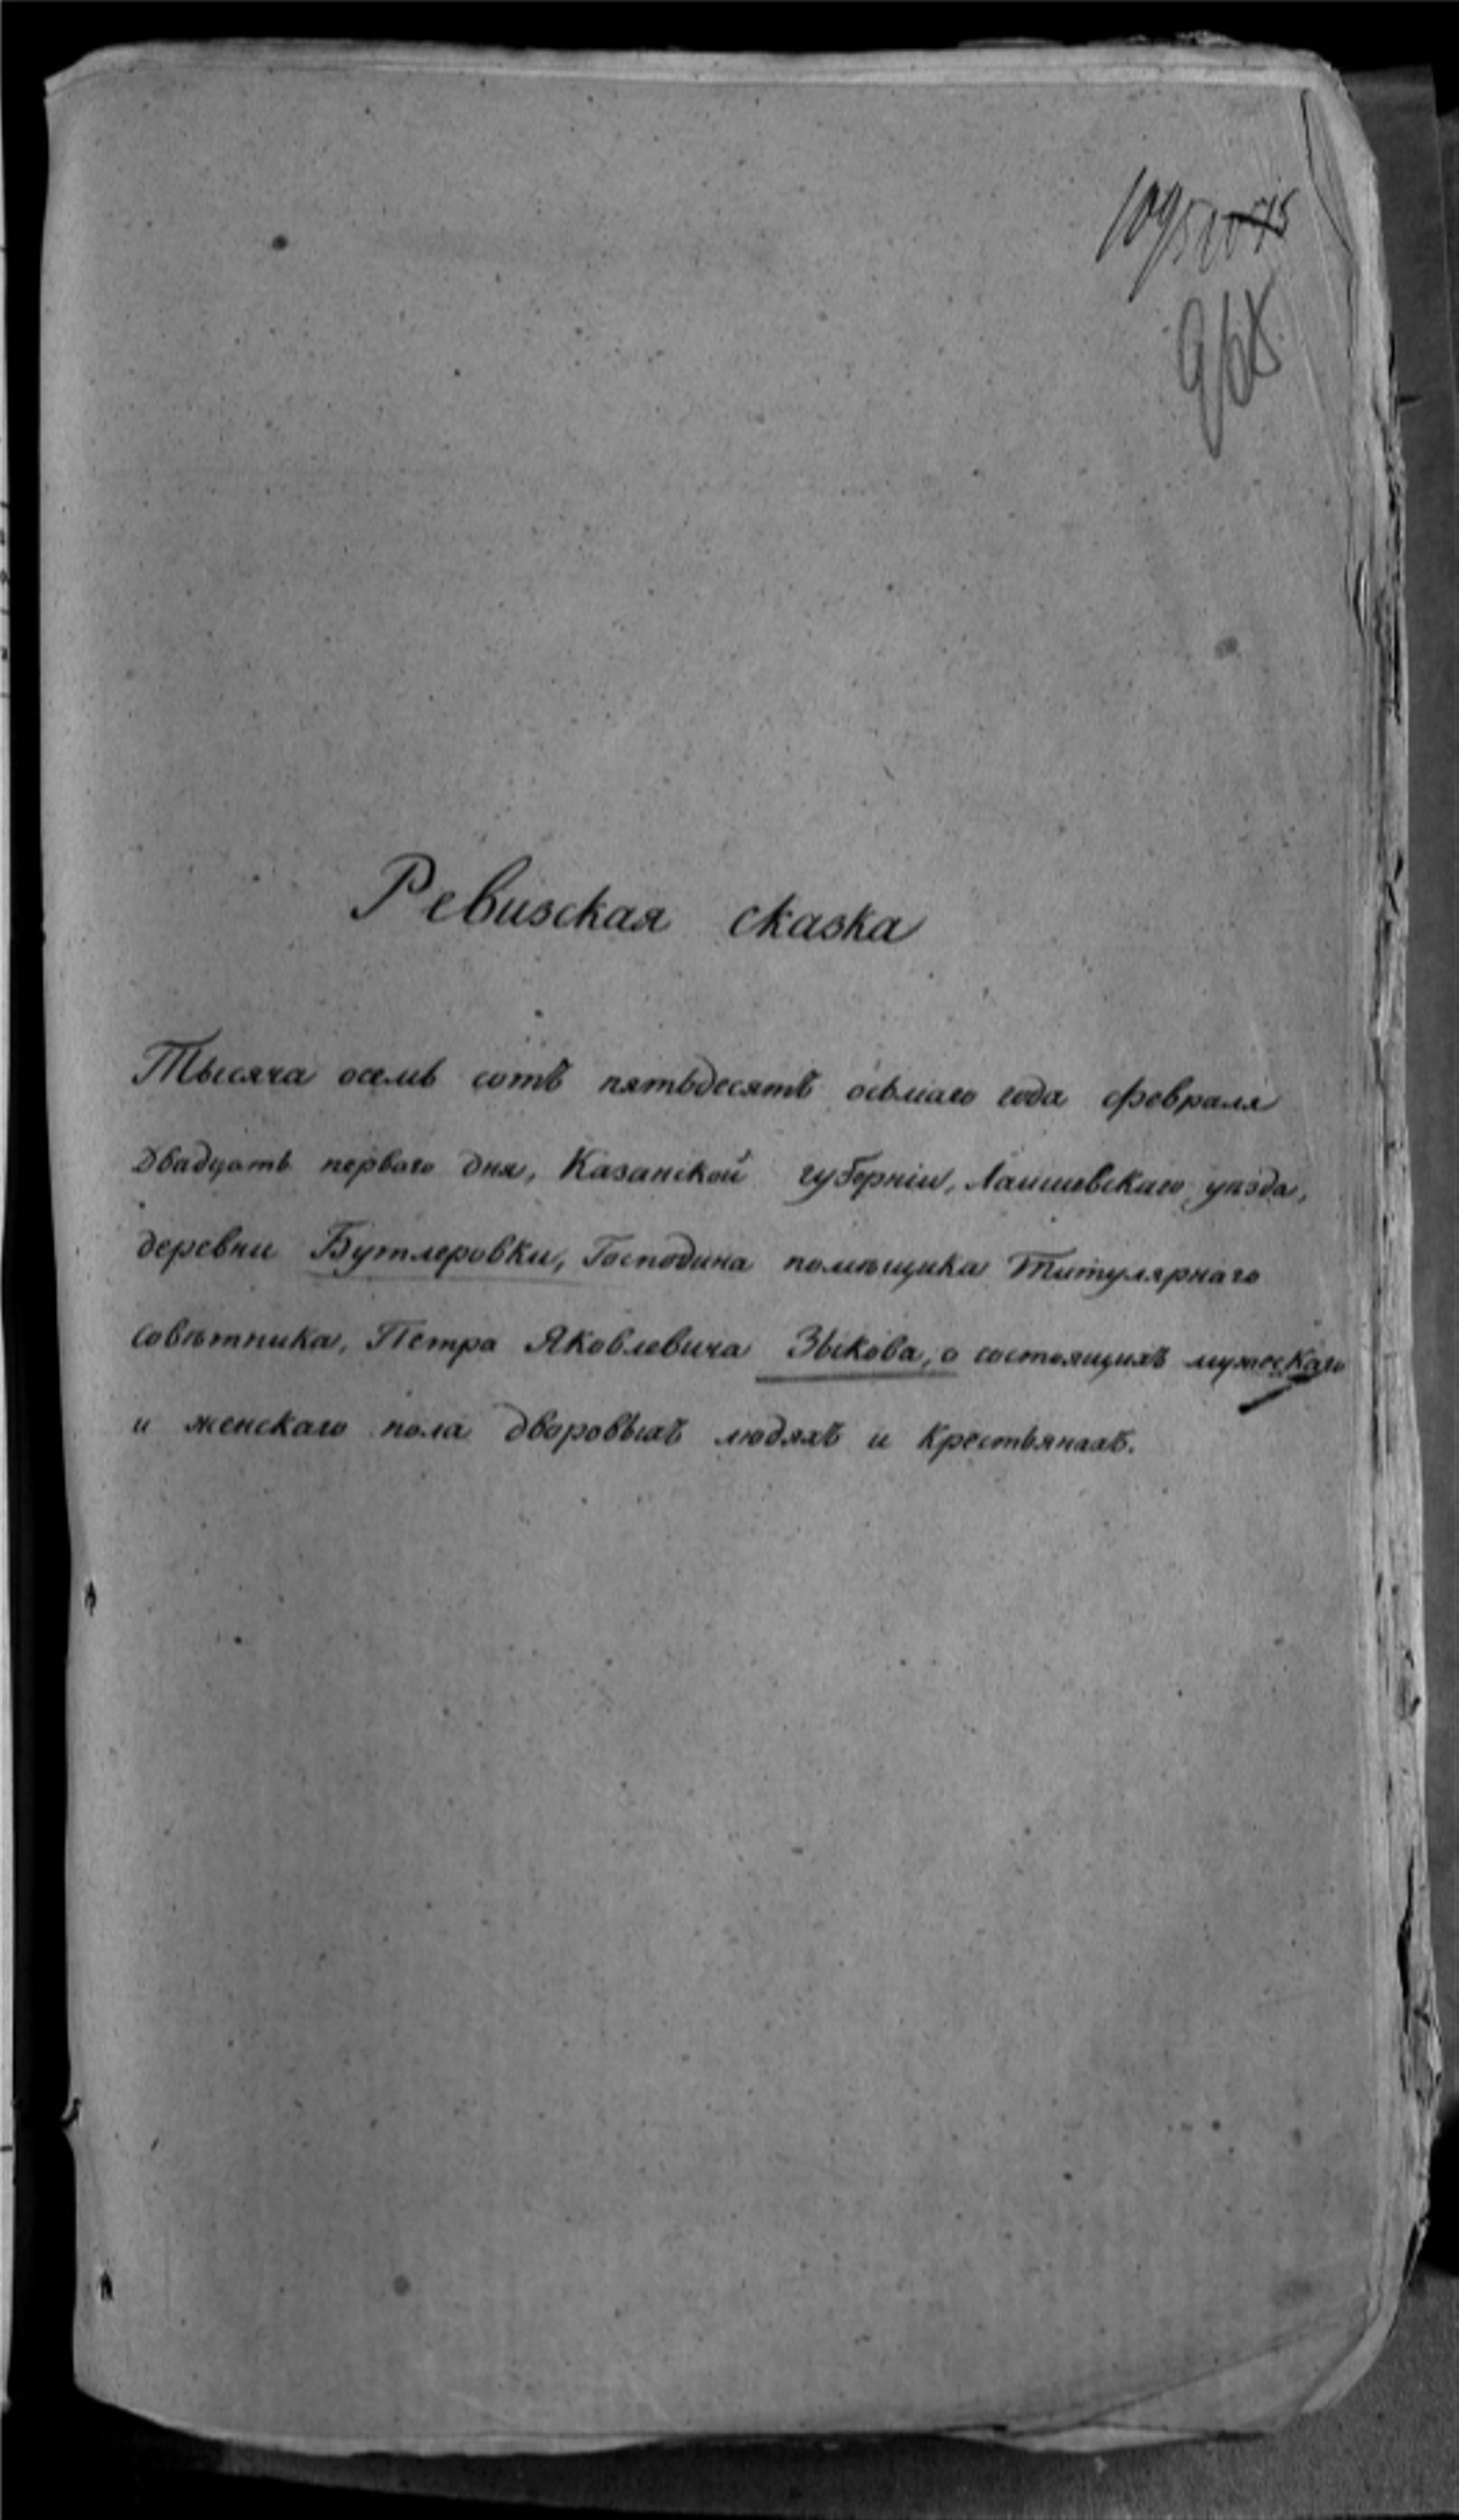 968
Ревизская сказка
Тысяча осемь сотъ пятьдесятъ осьмаго года февраля
двадцать перваго дня, Казанской губерніи, Лаишевскаго уѣзда,
деревни Бутлеровки, Господина помѣщика Титулярнаго
совѣтника, Петра Яковлевича Зыкова, о состоящихъ мужескаго
и женскаго пола дворовыхъ людяхъ и крестьянахъ.